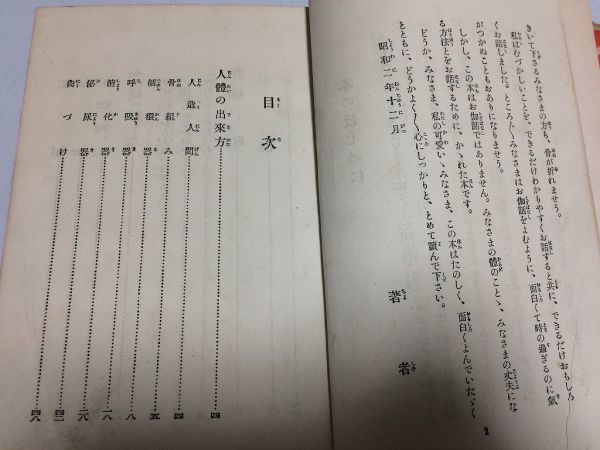 きいて下さるみなさまの方も、骨が折れませう。
私はむづかしいことを、できるだけわかりやすくお話すると共に、できるだけおもしろ
くお話しました。ところ〴〵みなさまはお伽話をよむように、面白くて時の過ぎるのに氣
がつかぬこともおありになりませう。
しかし、この本はお伽話ではありません。みなさまの體のことゝ、みなさまの丈夫にな
る方法とをお話するために、かゝれた本です。
どうか、みなさま、私の可愛いゝみなさま、この本はたのしく、面白くよんでいたゞく
とともに、どうかよく〳〵心にしつかりと、とめて讀んで下さい。
昭和二年十二月
著者
2
目次
人體の出來方……四
人造人間……四
骨組み……四
循環器……五
呼吸器……八
消化器……一八
泌尿器……二八
歯づけ……四八